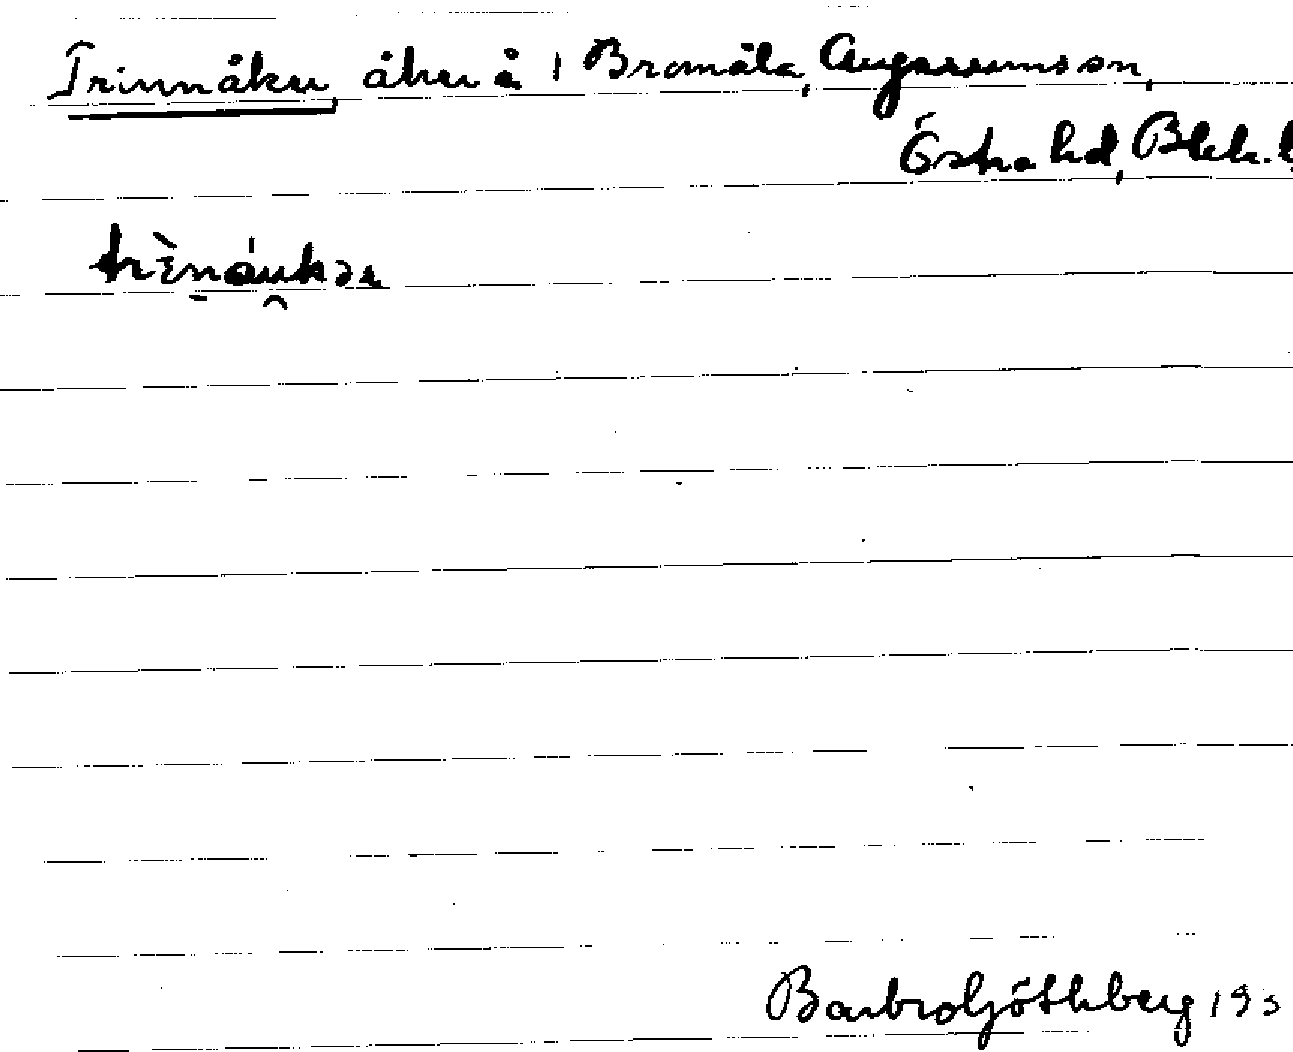 Trinnåker, åker å i Bromåla, Augerums sn,
Östra hd, Blek. l
Barbro Göthberg 193